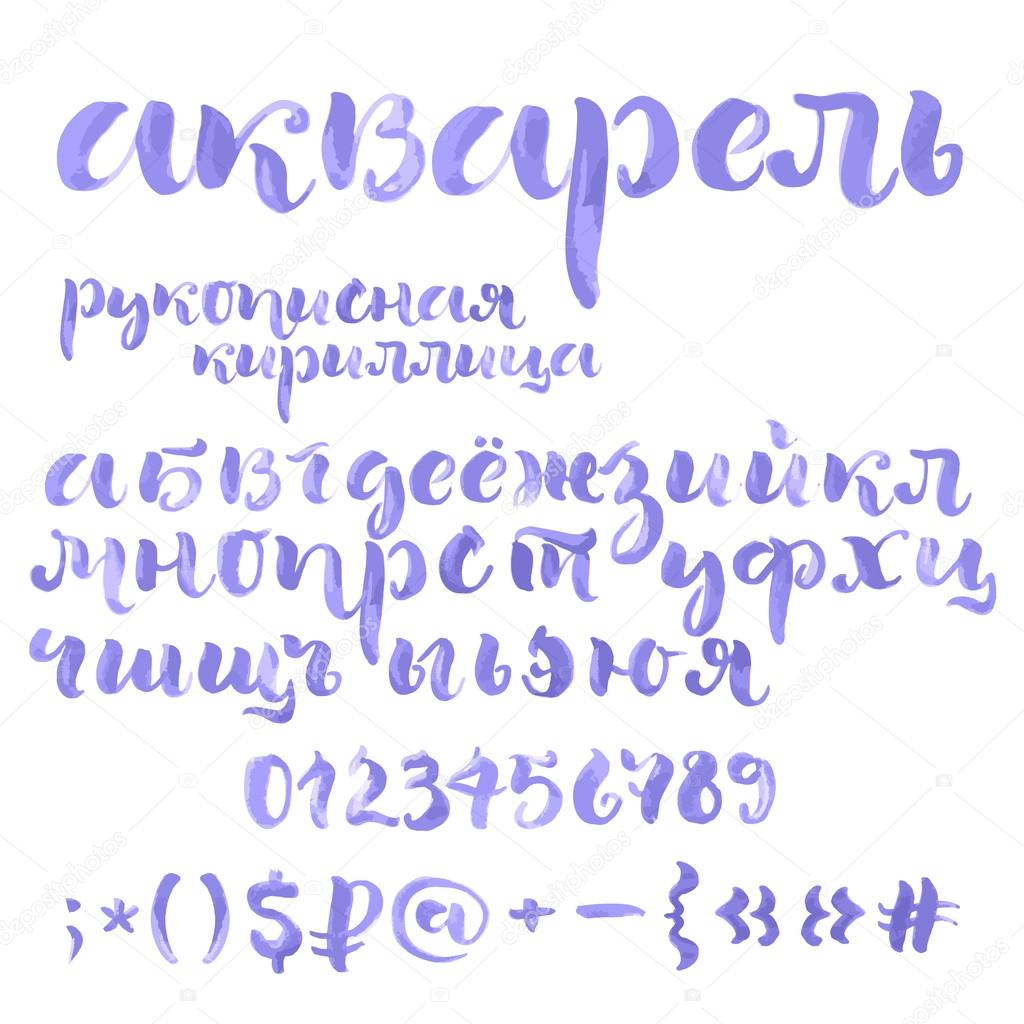 акварель
рукописная
кириллица
абвгдеёжзийкл
мнопрстуфхц
чшщъыьэюя
0123456789
;*()$₽@+−{«»#